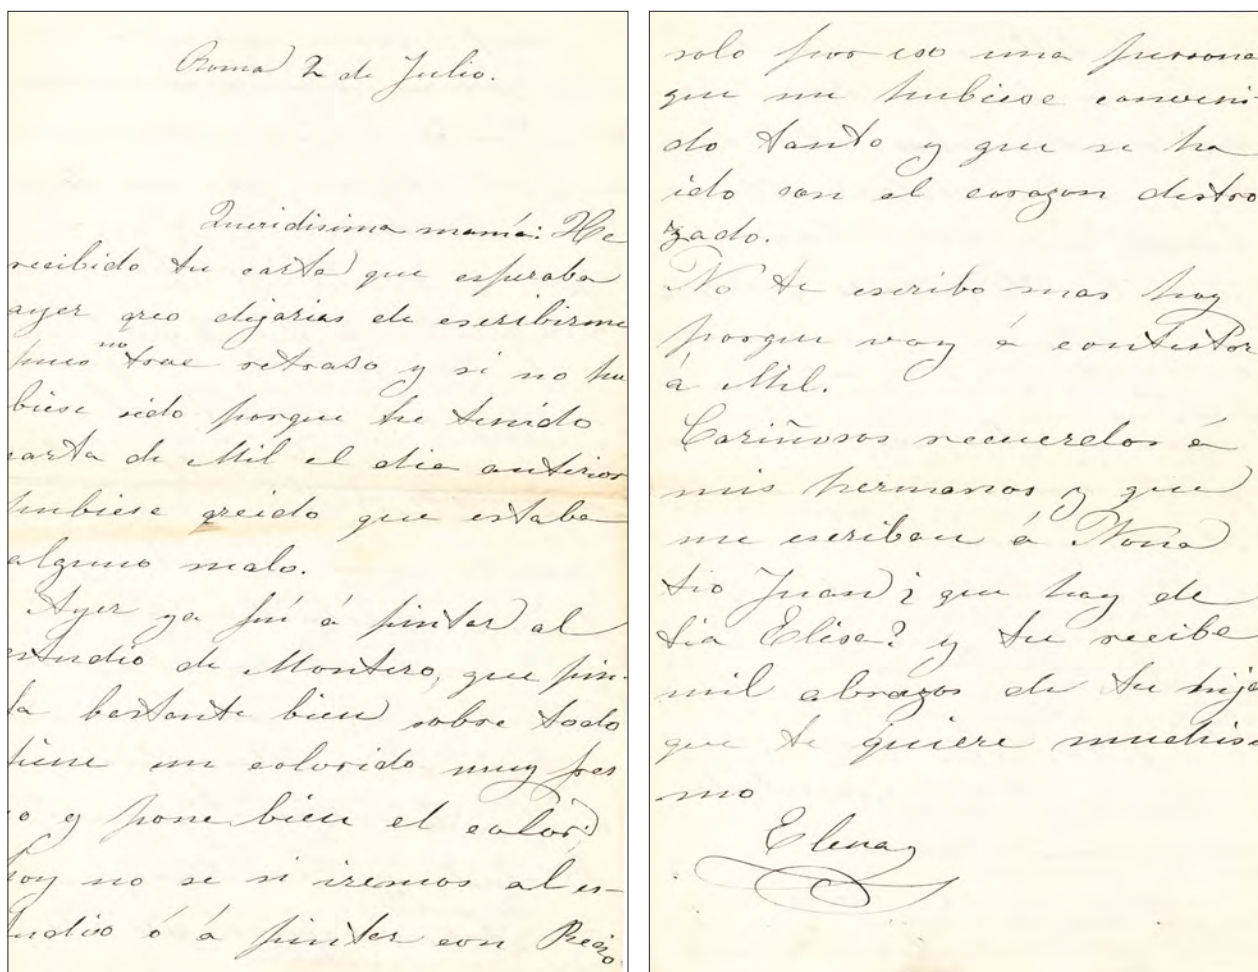 Roma 2 de Julio.
Queridisima mamá: He
recibido tu carta que esperaba
ayer creo dejarias de escribirme
pues no trae retraso y si no hu
biese sido porque he tenido
carta de Mil el dia anterior
hubiese creido que estaba
alguno malo.
Ayer ya fuí á pintar al
estudio de Montero, que pin-
ta bastante bien sobre todo
tiene un colorido muy fres
co y pone bien el color;
hoy no se si iremos al es-
tudio ó á pintar con Recio
solo por eso una persona
que me hubiese conveni-
do tanto y que se ha
ido con el corazon destro
zado.
No te escribo mas hoy
porque voy á contestar
á Mil.
Cariñosos recuerdos á
mis hermanos y que
me escriban á Nona
tio Juan ¿que hay de
tia Elisa? y tu recibe
mil abrazos de tu hija
que te quiere muchisi
mo
Elena